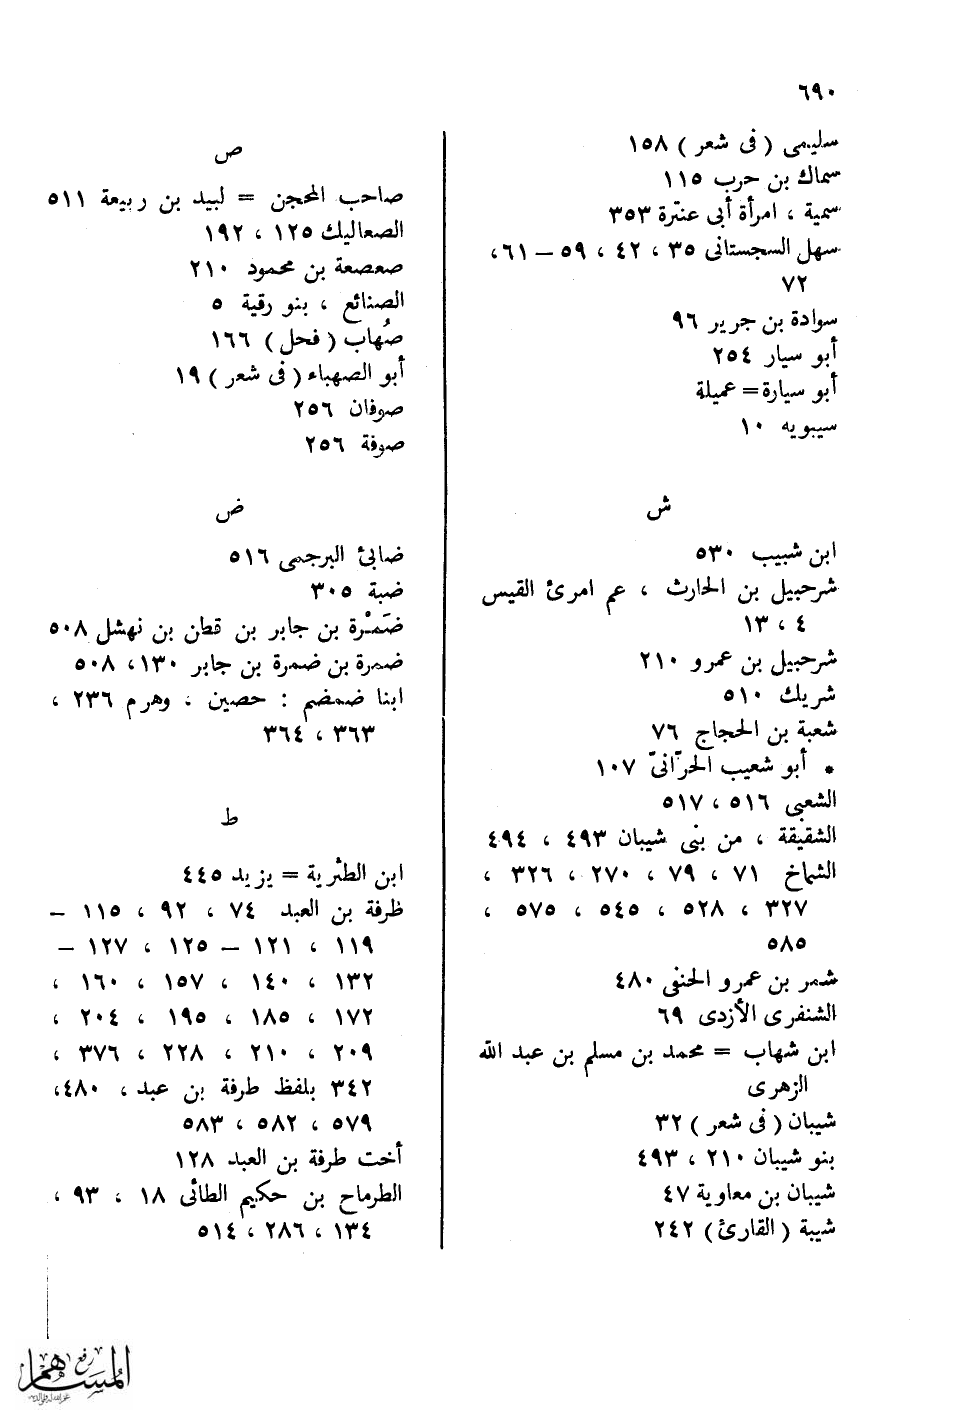 ٦٩٠
سليمى (فى شعر) ١٥٨
سماك بن حرب ١١٥
سمية ، امرأة أبى عنترة ٣٥٣
سهل السجستانى ٣٥ ، ٤٢ ، ٥٩ – ٦١،
٧٢
سوادة بن جرير ٩٦
أبو سيار ٢٥٤
أبو سيارة = عميلة
سيبويه ١٠
ش
ابن شبيب ٥٣٠
شرحبيل بن الحارث ، عم امرئ القيس
٤ ، ١٣
شرحبيل بن عمرو ٢١٠
شريك ٥١٠
شعبة بن الحجاج ٧٦
* أبو شعيب الحرّانىّ ١٠٧
الشعبى ٥١٦ ، ٥١٧
الشقيقة ، من بنى شيبان ٤٩٣ ، ٤٩٤
الشماخ ٧١ ، ٧٩ ، ٢٧٠ ، ٣٢٦ ،
٣٢٧ ، ٥٢٨ ، ٥٤٥ ، ٥٧٥ ،
٥٨٥
شمر بن عمرو الحنفى ٤٨٠
الشنفرى الأزدى ٦٩
ابن شهاب = محمد بن مسلم بن عبد الله
الزهرى
شيبان (فى شعر) ٣٢
بنو شيبان ٢١٠ ، ٤٩٣
شيبان بن معاوية ٤٧
شيبة (القارئ) ٢٤٢
ص
صاحب المحجن = لبيد بن ربيعة ٥١١
الصعاليك ١٢٥ ، ١٩٢
صعصعة بن محمود ٢١٠
الصنائع ، بنو رقية ٥
صُهاب (فحل) ١٦٦
أبو الصهباء (فى شعر) ١٩
صوفان ٢٥٦
صوفة ٢٥٦
ض
ضابئ البرجمى ٥١٦
ضبة ٣٠٥
ضَمْرة بن جابر بن قطن بن نهشل ٥٠٨
ضمرة بن ضمرة بن جابر ١٣٠، ٥٠٨
ابنا ضمضم : حصين ، وهرم ٢٣٦ ،
٣٦٣ ، ٣٦٤
ط
ابن الطثرية = يزيد ٤٤٥
طرفة بن العبد ٧٤ ، ٩٢ ، ١١٥ –
١١٩ ، ١٢١ – ١٢٥ ، ١٢٧ –
١٣٢ ، ١٤٠ ، ١٥٧ ، ١٦٠ ،
١٧٢ ، ١٨٥ ، ١٩٥ ، ٢٠٤ ،
٢٠٩ ، ٢١٠ ، ٢٢٨ ، ٣٧٦ ،
٣٤٢ بلفظ طرفة بن عبد ، ٤٨٠،
٥٧٩ ، ٥٨٢ ، ٥٨٣
أخت طرفة بن العبد ١٢٨
الطرماح بن حكيم الطائى ١٨ ، ٩٣ ،
١٣٤ ، ٢٨٦ ، ٥١٤
رفع
المساهم